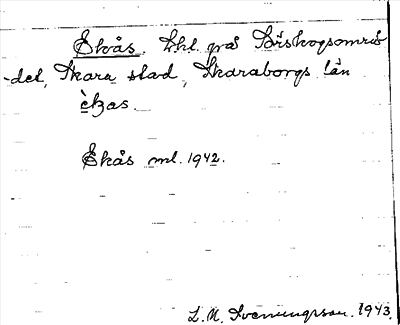 Ekås. Lkl. på Börskogsområ-
det, Skara stad, Skaraborgs län
èkas.
Ekås ml. 1942.
L.M. Svenungsson. 1943.